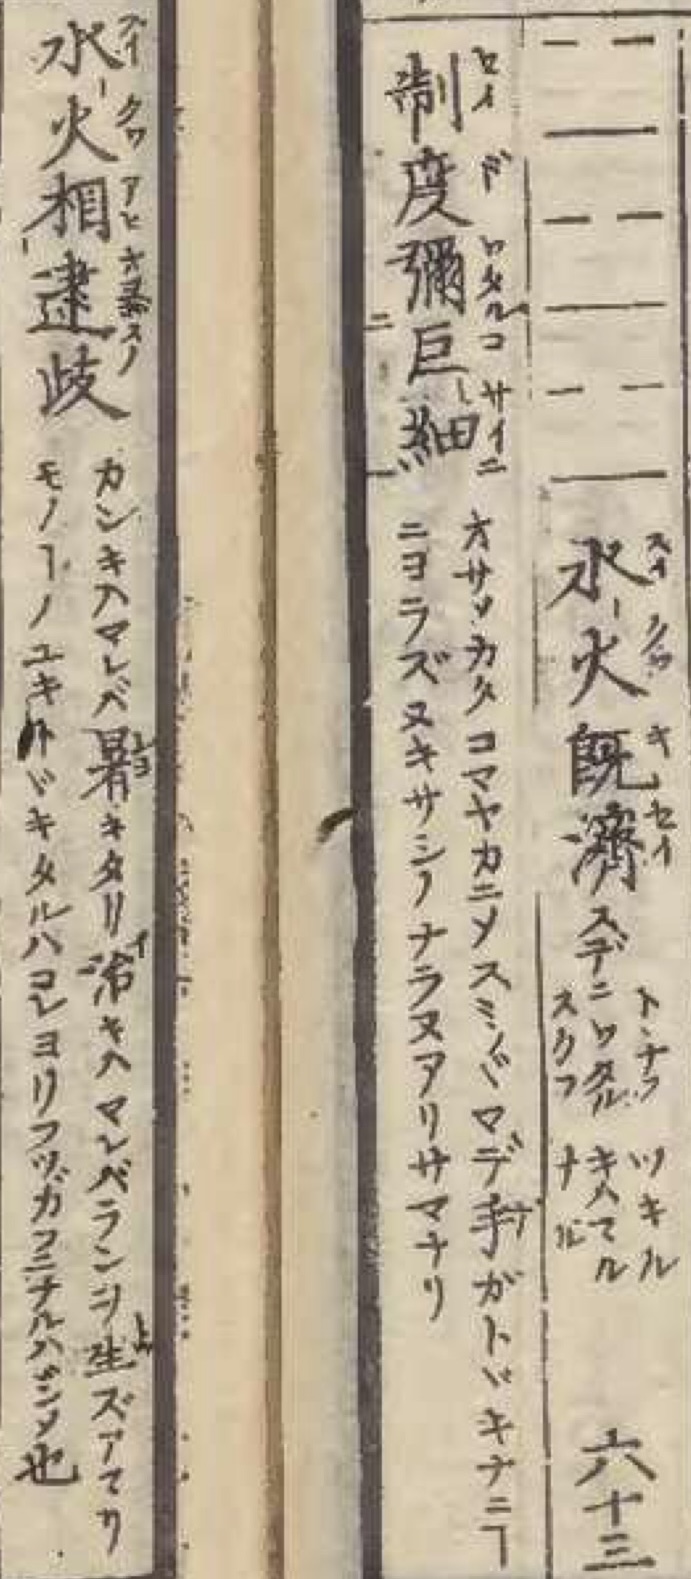 水火既済 スデニワタル スクフ トヽナフ ツキル キハマル ナル 六十三
スイ クワ キ セイ
制度彌巨細
セイ ド ワタルコ サイニ
オサメカタコマヤカニシテスミ〴〵マデ手ガトヾキナニヿ
ニヨラズヌキサシノナラヌアリサマナリ
水火相逮歧
スイ クワ アヒ オヨスノ
カンキハマレバ暑キタリ治キハマレバランヲ生ズアマリ
モノヿノユキトヾキタルハコレヨリフツガフニナルハジメ也